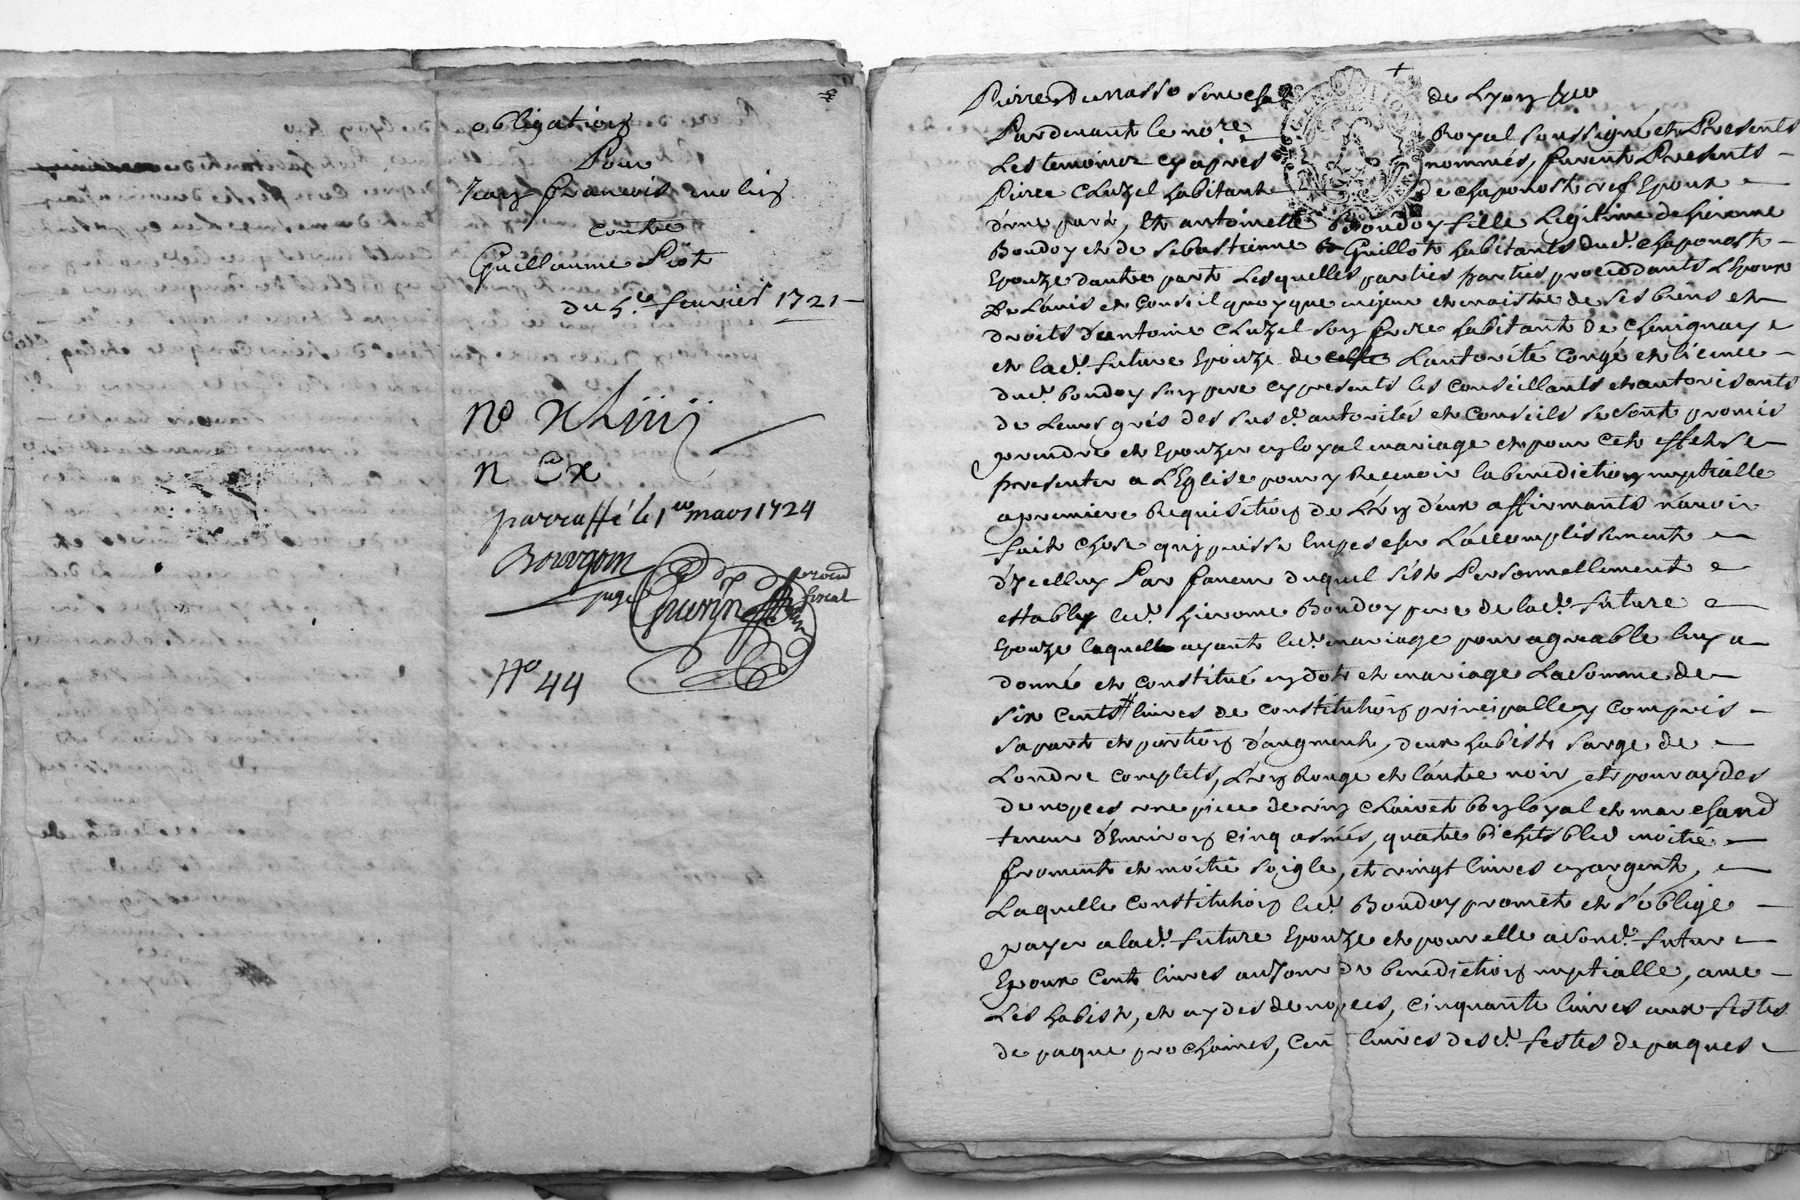 obligation
Pour
Jean François molin
contre
Guillaume Piot
du 5.e feurier 1721
No xLiiij
n Cx
parraffé le 1er mars 1724
Bourgoin
juge
Guerin
procu
fiscal
No 44
de Lyon
Pardeuant le no.re Royal soussigné et Presents
Les temoins cy apres nommés, furent Presents
Piere Cluzel habitant de chaponost ref Epoux
d'vne part, Et antoinette Boudoy fille Legitime de hierome
Boudoy et de sebastienne Guillot habitants dud. chaponost
Epouze dautre part Lesquelles parties parties proceddants L Epoux
De L'auis et Conseil quoyque majeur et maistre de ses biens et
droits d'antoine Cluzel son frere habitant de
et lad. future Epouze de L'autorité congé et licence
dud. boudoy son pere cy presents les Conseillants et autorisants
de Leurs grés des susd. autorités et Conseils se sont promis
prendre et Epouzer en loyal mariage et pour cet effet se
presenter a L'Eglise pour y Receuoir la benediction nuptialle
a premiere Requisition de L'vn d'eux affirmants n'auoir
fait chose qui puisse Empescher L'accomplissement
d'Jcelluy Par faueur duquel s'est Personnellement
estably led. hierome Boudoy pere de lad. future
Epouze laquelle ayant led. mariage pour agreable luy a
donné et constitué en dot et mariage La somme de
six cents liures de constitution principalle y compris
sa part et portion d'augment, deux habist sarge de
Londre complets, L'vn Rouge et l'autre noir, et pour aydes
de nopces vne piece de vin clairet bon loyal et marchand
teneur d'Enuiron cinq asnés, quatre bichets bled moitié
froment et moitié soigle, et vingt liures en argent,
Laquelle constitution led. Boudoy promet et s'oblige
payer a lad. future Epouze et pour elle a sond. futur
Epoux Cent liures au Jour de benediction nuptialle, auec
Les habist, et aydes de nopces, Cinquante liures aux festes
de paque prochaines, Cent liures desd. festes de paques